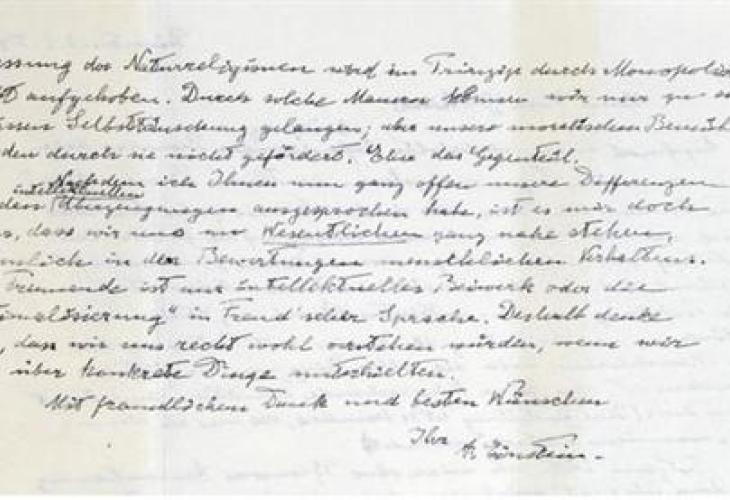 ssung der Naturreligionen wird im Prinzip durch Monopolis
t aufgehoben. Durch solche Mauern können wir nur zu e
issen Selbsttäuschung gelangen; aber unsere moralischen Bemüh
den durch sie nicht gefördert. Eher das Gegenteil.
Nachdem ich Ihnen nun ganz offen unsere Differenzen
intellektuellen
den Überzeugungen ausgesprochen habe, ist es mir doch
, dass wir uns im Wesentlichen ganz nahe stehen,
mlich in den Bewertungen menschlichen Verhaltens.
Trennende ist nur intellektuelles Beiwerk oder die
nalisierung" in Freud'scher Sprache. Deshalb denke
, dass wir uns recht wohl verstehen würden, wenn wir
über konkrete Dinge unterhielten.
Mit freundlichem Dank und besten Wünschen
Ihr
A. Einstein.